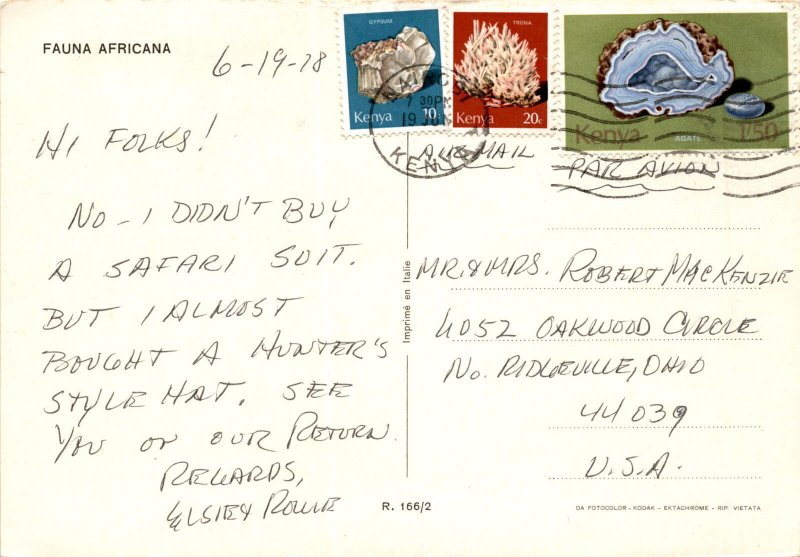 FAUNA AFRICANA
6-19-78
HI FOLKS!
NO - I DIDN'T BUY
A SAFARI SUIT.
BUT I ALMOST
BOUGHT A HUNTER'S
STYLE HAT. SEE
YOU ON OUR RETURN.
REGARDS,
GYPSUM
Kenya 10c
TRONA
Kenya 20c
AGATE
Kenya 1'50
7 30PM
19 JUN
KENYA
AIR MAIL
PAR AVION
MR. & MRS. ROBERT MACKENZIE
4052 OAKWOOD CIRCLE
NO. RIDGEVILLE, OHIO
44039
U.S.A.
Imprimé en Italie
R. 166/2
DA FOTOCOLOR - KODAK - EKTACHROME - RIP. VIETATA